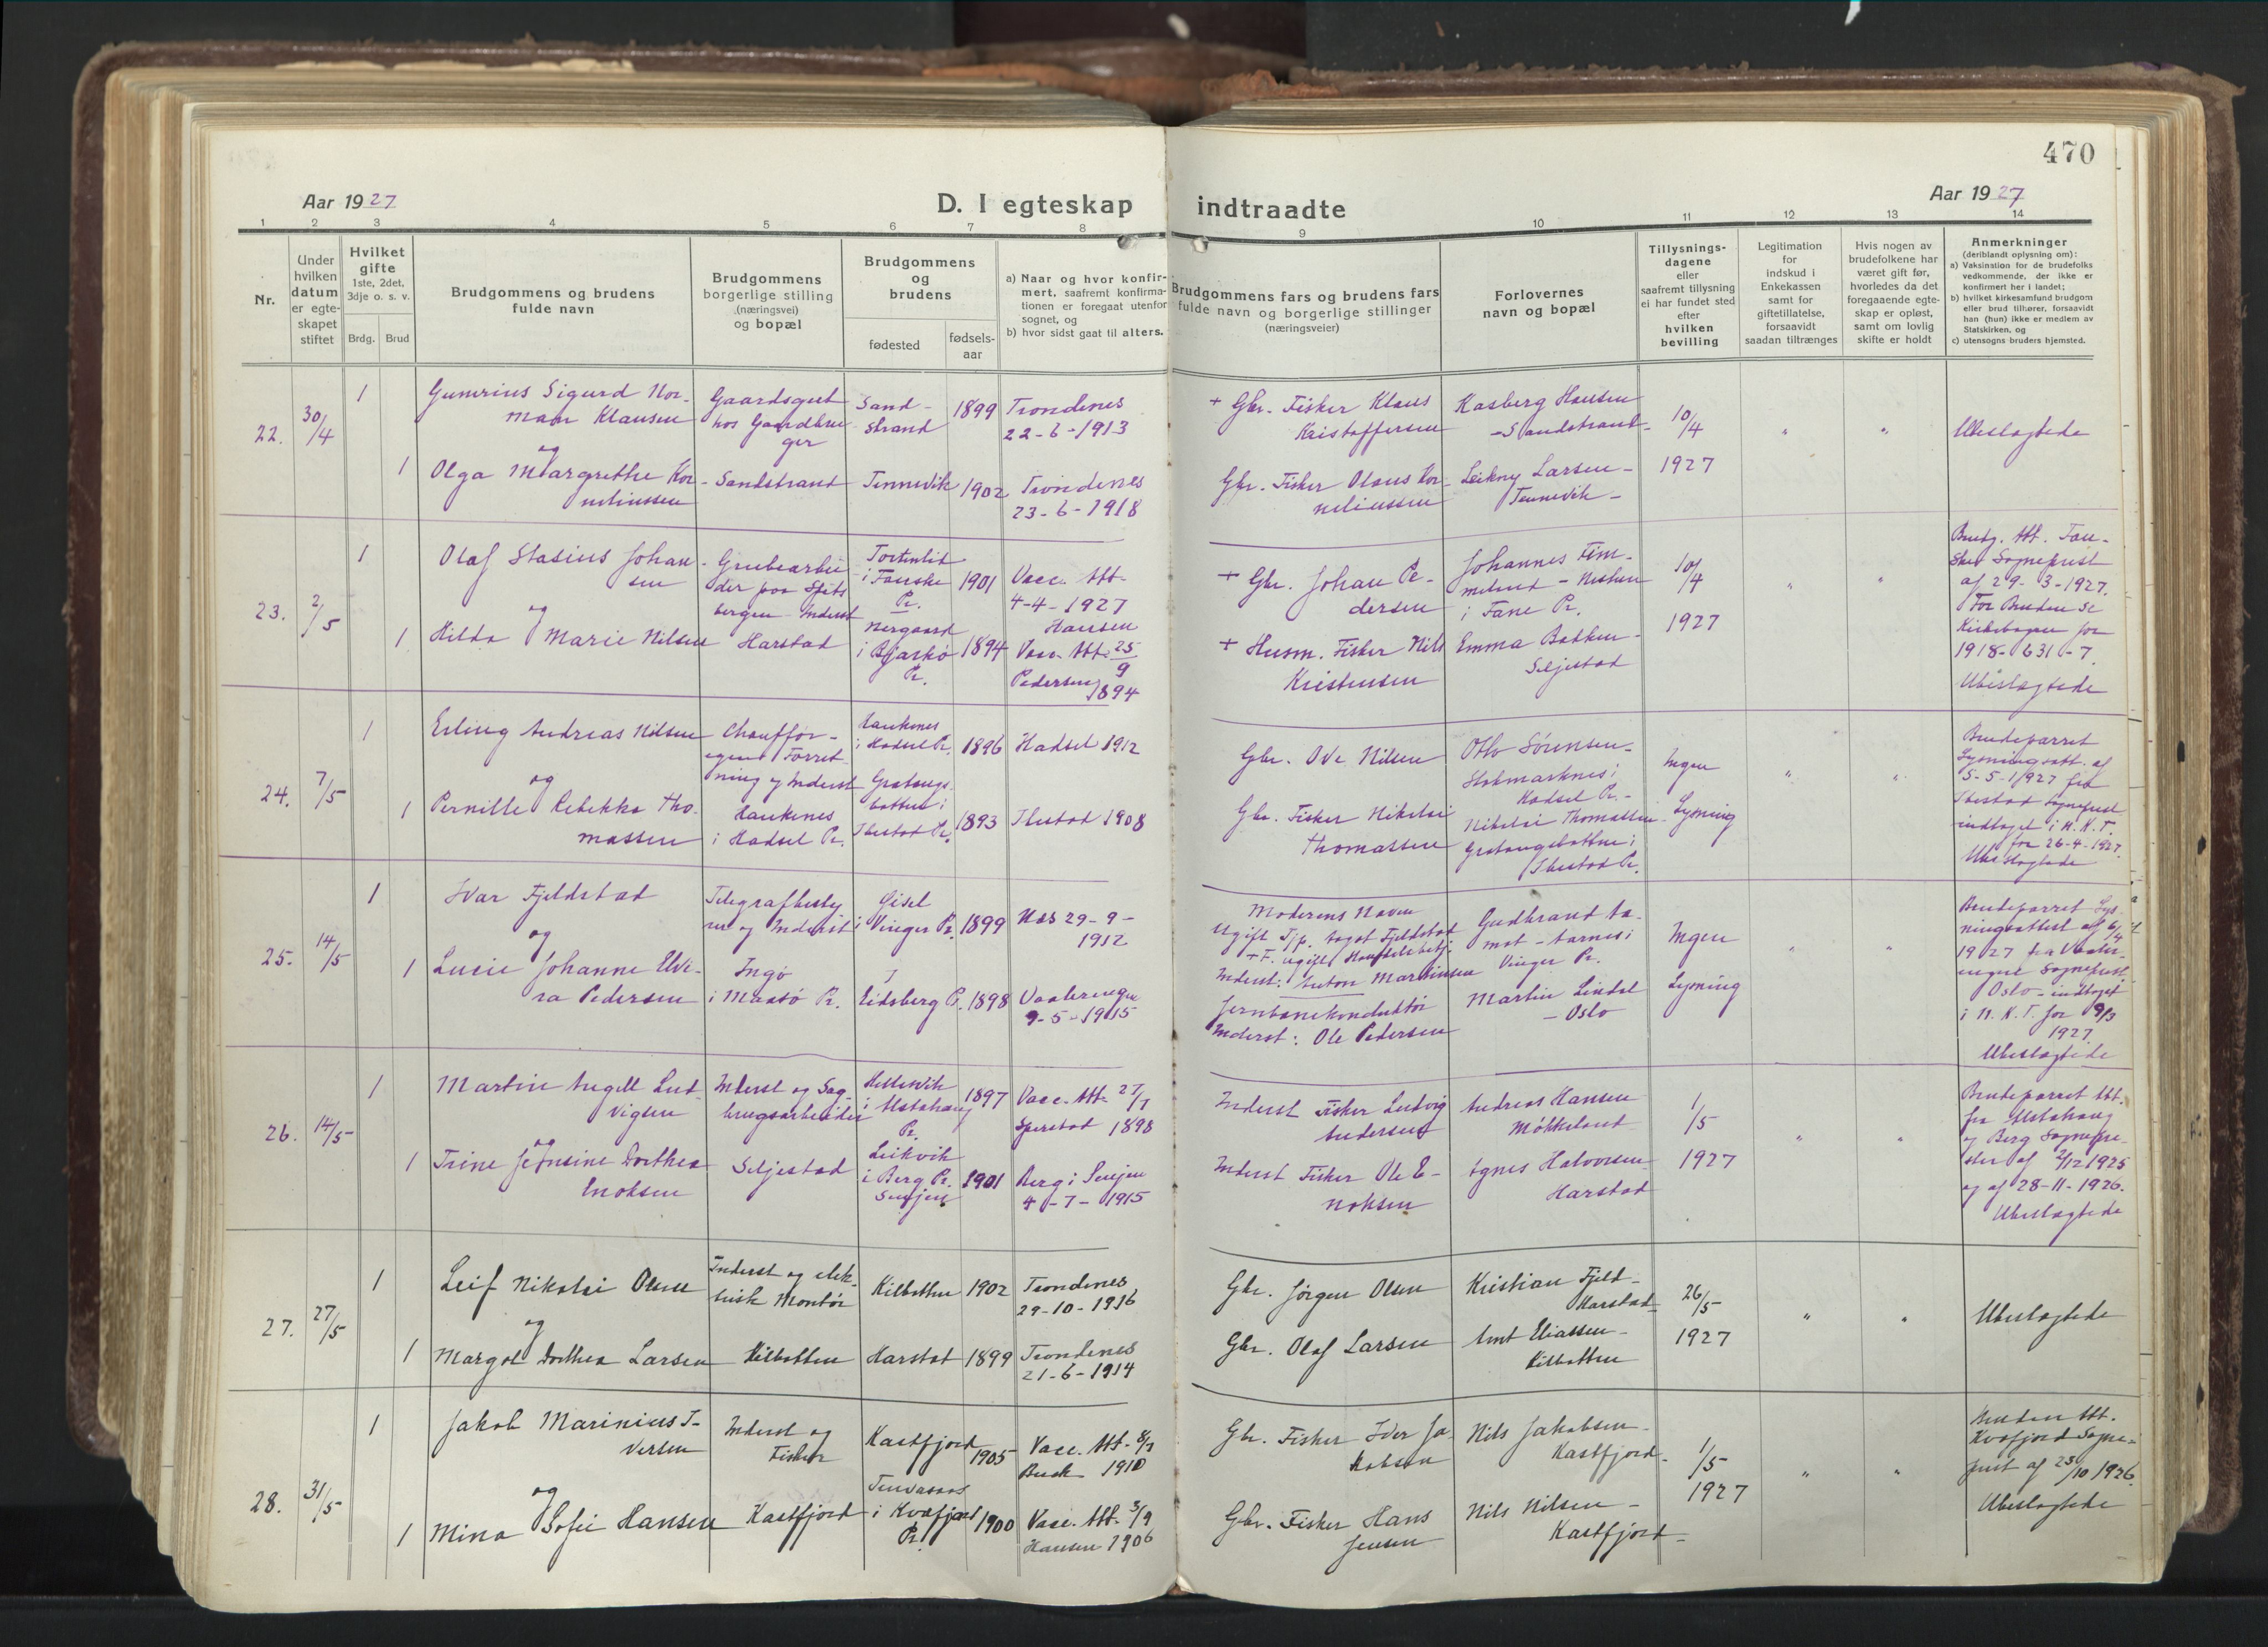 470
Aar 1927
D. I egteskap indtraadte
Aar 1927
1 2 3 4 5 6 7 8 9 10 11 12 13 14
Nr.
Under
hvilken
datum
er egte-
skapet
stiftet
Hvilket
gifte
1ste, 2det,
3dje o. s. v.
Brdg. Brud
Brudgommens og brudens
fulde navn
Brudgommens
borgerlige stilling
(næringsvei)
og bopæl
Brudgommens
og
brudens
fødested
fødsels-
aar
a) Naar og hvor konfir-
mert, saafremt konfirma-
tionen er foregaat utenfor
sognet, og
b) hvor sidst gaat til alters.
Brudgommens fars og brudens fars
fulde navn og borgerlige stillinger
(næringsveier)
Forlovernes
navn og bopæl
Tillysnings-
dagene
eller
saafremt tillysning
ei har fundet sted
efter
hvilken
bevilling
Legitimation
for
indskud i
Enkekassen
samt for
giftetillatelse,
forsaavidt
saadan tiltrænges
Hvis nogen av
brudefolkene har
været gift før,
hvorledes da det
foregaaende egte-
skap er opløst,
samt om lovlig
skifte er holdt
Anmerkninger
(deriblandt oplysning om):
a) Vaksination for de brudefolks
vedkommende, der ikke er
konfirmert her i landet;
b) hvilket kirkesamfund brudgom
eller brud tilhører, forsaavidt
han (hun) ikke er medlem av
Statskirken, og
c) utensogns bruders hjemsted.
22.
30/4
1
Gunerius Sigurd Nor-
man Klausen
og
1
Olga Margrethe Kor-
neliussen
Gaardsgut
hos Gaardbru-
ger
Sandstrand
Sand-
strand
1899
Tennevik
1902
Trondenes
22-6-1913
Trondenes
23-6-1918
+ Gbr. Fisker Klaus
Kristoffersen
Gbr. Fisker Olaus Kor-
neliussen
Kasberg Hansen
- Sandstrand -
Leikny Larsen -
Tennevik -
10/4
1927
" "
Ubeslegtede
23.
2/5
1
Olaf Stasius Johan-
sen
og
1
Hilda Marie Nilsen
Grubearbei-
der paa Spits-
bergen Inderst
Harstad
i Fauske
Pr.
1901
Nergaard
i Bjarkö
Pr.
1894
Vacc. Att.
4-4-1927
Hansen
Vacc. Att. 25/9
Pedersen
1894
+ Gbr. Johan Pe-
dersen
+ Husm. Fisker Nils
Kristensen
Johannes
i Fane Pr.
Emma Bakken -
Seljestad
10/4
1927
" "
Brudg. Att. Fau-
ske Sogneprest
af 29-3-1927.
For Bruden se
Kirkebogen for
1918-631-7.
Ubeslegtede
24.
7/5
1
Erling Andreas Nilsen
og
1
Pernille Rebekka Tho-
massen
Chauffør -
egen Forret-
ning og Inderst
Haukenes
i Hadsel Pr.
Haukenes
i Hadsel Pr.
1896
Gratangs-
botten i
Ibestad Pr.
1893
Hadsel 1912
Ibestad 1908
Gbr. Ove Nilsen
Gbr. Fisker Nikolai
Thomassen
Otto Sörensen -
Stokmarknes i
Hadsel Pr. -
Nikolai Thomassen -
Gratangsbotten i
Ibestad Pr.
Ingen
Lysning
" "
Brudeparret
Lysningsatt. af
5-5-1927 fra
Ibestad Sogneprest
indtaget i N. K. T.
for 26-4-1927.
Ubeslegtede
25.
14/5
1
Ivar Fjeldstad
og
1
Lucie Johanne Elvi-
ra Pedersen
Telegrafbesty-
rer og Inderst
Ingö
i Maasö Pr.
Gisel
i Vinger Pr.
1899
Eidsberg Pr.
1898
Nes 29-9-
1912
Vaalerengen
9-5-1915
Moderens Navn
Ugift Tjp. Aagot Fjeldstad
+ F. ugift Handelsbetj.
Inderst: Anton Martinsen
Jernbanekonduktör
Inderst: Ole Pedersen
Gudbrand Aa-
mot - Aarnes i
Vinger Pr.
Martin Lindal
- Oslo
Ingen
Lysning
" "
Brudeparret Lys-
ningsattest af 6/4
1927 fra Vaaler-
engen Sogneprest
Oslo - indtaget
i N. K. T. for 9/3
1927
Ubeslegtede
26.
14/5
1
Martin Angell Lud-
vigsen
og
1
Trine Jensine Dorthea
Enoksen
Inderst og Sag-
brugsarbeider
Seljestad
i Alstahaug
Pr.
1897
Leikvik
i Berg Pr.
Senjen
1901
Vacc. Att. 27/7
1898
Berg i Senjen
4-7-1915
Inderst Fisker Ludvig
Andersen
Inderst Fisker Ole E-
noksen
Andreas Hansen
Mökkeland
Agnes Halvorsen
Harstad
1/5
1927
" "
Brudeparret Att.
fra Alstahaug
og Berg Sognepre-
ster af 2/12 1925
og af 28-11-1926.
Ubeslegtede
27.
27/5
1
Leif Nikolai Olsen
og
1
Margot Dorthea Larsen
Inderst og elek-
trisk Montör
Kilbotten
Kilbotten 1902
Harstad 1899
Trondenes
29-10-1916
Trondenes
21-6-1914
Gbr. Jörgen Olsen
Gbr. Olaf Larsen
Kristian Fjeld -
Harstad
Amt Eliassen -
Kilbotten
26/5
1927
" "
Ubeslegtede
28.
31/5
1
Jakob Marinius I-
versen
og
1
Mina Sofie Hansen
Inderst og
Fisker
Kastfjord
Kastfjord
1905
i Kvæfjord
Pr.
1900
Vacc. Att. 8/7
Buck 1910
Vacc. Att. 3/9
Hansen 1906
Gbr. Fisker Iver Ja-
kobsen
Gbr. Fisker Hans
Jensen
Nils Jakobsen -
Kastfjord -
Nils Nilsen -
Kastfjord -
1/5
1927
" "
Bruden Att.
Kvæfjord Sogne-
prest af 25/10 1926.
Ubeslegtede